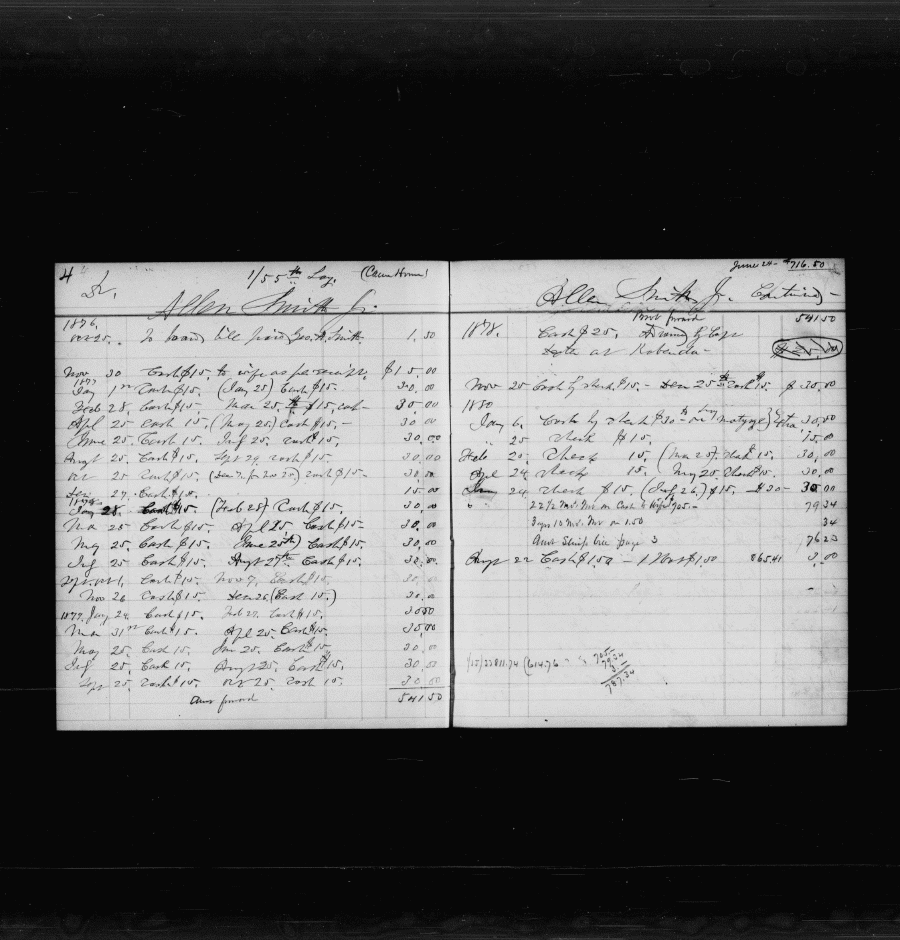 4
1/55th Lay. (Came Home)
Dr.
Allen Smith Jr.
1876,
Oct 25. To board bill paid Geo. H. Smith 1.50
Nov 30 Cash $15, to wife as per receipt. $15.00
1877
Jany 1st Cash $15. (Jany 25) Cash $15. 30.00
Feb 28, Cash $15, Mar 25th $15, cash 30.00
Apl 25 Cash 15, (May 25) Cash $15, 30.00
June 25, Cash 15. July 25 Cash $15, 30.00
Augt 25 Cash $15, Sept 29, Cash $15. 30.00
Oct 25 Cash $15. cash $15 30.00
Dec 27, Cash $15. 15.00
1878
Jany 28. Cash $15 (Feb 25) Cash $15. 30.00
Mar 25 Cash $15. Apl 25 Cash $15. 30.00
May 25, Cash $15. June 25th) Cash $15. 30.00
July 25 Cash $15. Augt 27th Cash $15. 30.00
Sept. Cash $15. Nov 7, Cash $15. 30.00
Nov 26 Cash $15. Dec 26 (Cash 15.) 30.00
1879 Jany 24. Cash $15. Feb 27, Cash $15. 30.00
Mar 31st Cash $15. Apl 25, Cash $15. 30.00
May 25, Cash 15, Jun 25, Cash $15, 30.00
July 25, Cash 15, Augt 25, Cash $15, 30.00
Sept 25, Cash $15. Oct 25. Cash 15. 30.00
Amt forward 541.50
June 24 - $716.50
Allen Smith Jr. Continued -
Brot forward 541.50
1878. Cash $25, by Capt
at
Nov 25 Cash by check $15. - Dec 25th Cash $15. $30.00
1880
Jany 6. Cash by check $30 30.00
" 25 Check $15. 15.00
Feb 25 Check 15, (Mar 25). Check 15, 30.00
Apl 24 Check 15. May 25, Check $15. 30.00
24 Check $15, (July 26,) $15, $30 - 30.00
" 22 1/2 Int. on Cash 79.34
3 yrs 10 Int. on 1.50 34
Amt page 3 76 23
Augt 22 Cash $1.50 - $1.50 865.41 3.00
705 -
79.34
3 -
787.34